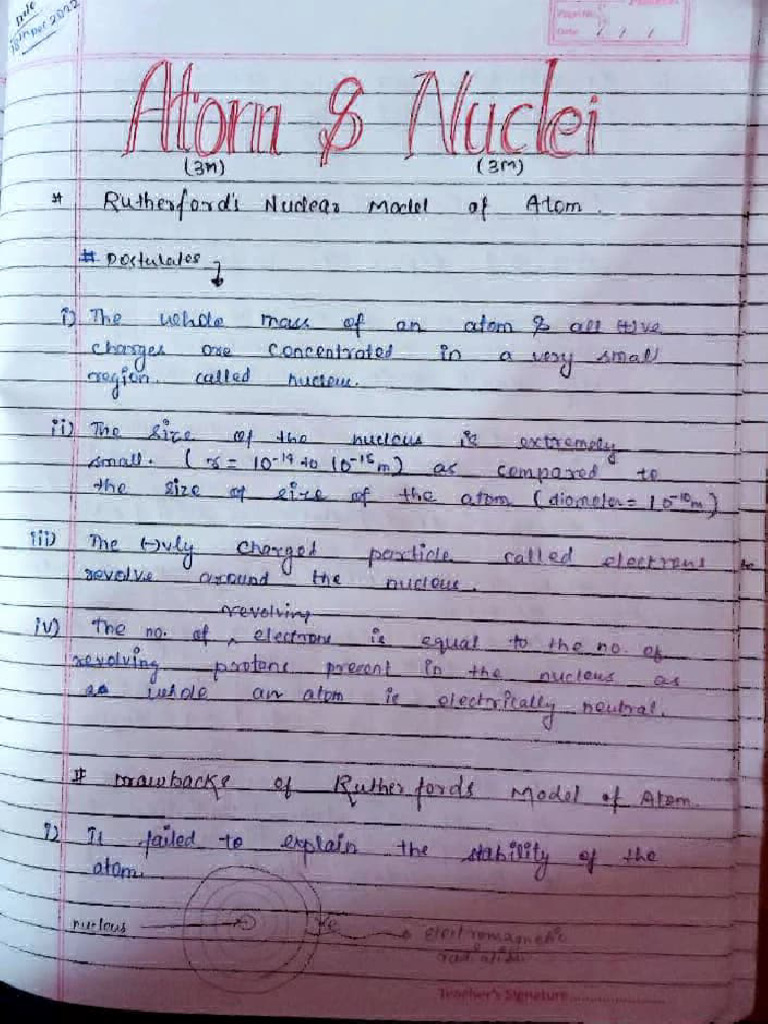 Date
Page No.
Date
Atom & Nuclei
(3m) (3m)
* Rutherford's Nuclear Model of Atom.
# Postulates
i) The whole mass of an atom & all (+)ve
charges are concentrated in a very small
region. called nucleus.
ii) The size of the nucleus is extremely
small. (r = 10⁻¹⁴ to 10⁻¹⁵m) as compared to
the size of size of the atom (diameter = 10⁻¹⁰m)
iii) The (-)vly charged particle called electrons
revolve around the nucleus.
revolving
iv) The no. of ^ electrons is equal to the no. of
revolving protons present in the nucleus as
as whole an atom is electrically neutral.
# Drawbacks of Rutherfords Model of Atom.
i) It failed to explain the stability of the
atom.
nucleus e electromagnetic
radiation
Teacher's Signature